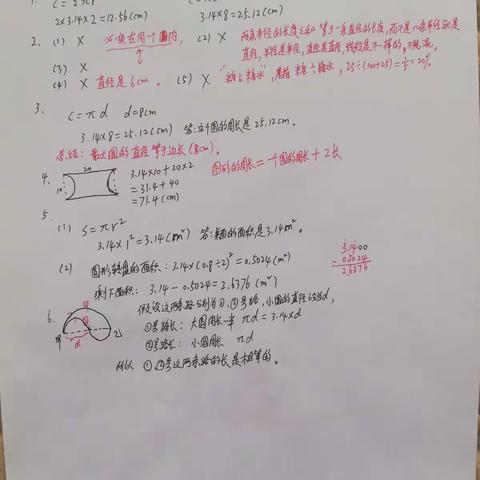 1. C = 2πr
2×3.14×2=12.56(cm)
3.14×8=25.12(cm)
2. (1) × 必须在同一个圆内,
(2) × 两条半径的长度之和等于一条直径的长度,而不是
直径,半径是半径,直径是直径,
(3) ×
(4) × 直径是6cm。
(5) × "糖占糖水",是指 糖÷糖水, 25÷(100+25)=1/5=20%
3. C=πd d=8cm
3.14×8=25.12(cm) 答:这个圆的周长是25.12cm。
总结:最大圆的直径等于边长(8cm)。
4. 20
10
10
3.14×10+20×2
=31.4+40
=71.4(cm)
图形的周长=一个圆的周长+2长
5. (1) S=πr²
3.14×1²=3.14(m²) 答:的面积是3.14m²。
(2) 圆形转盘的面积:3.14×(0.8÷2)²=0.5024(m²)
剩下面积:3.14-0.5024=2.6376(m²)
3.1400
0.5024
2.6376
6. 假设这两条路分别为①、②号路,小圆的直径设为d,
①号路长:大圆周长一半 πd=3.14×d
②号路长:小圆周长 πd
甲 乙
d
所以①、②号这两条路的长是相等的。